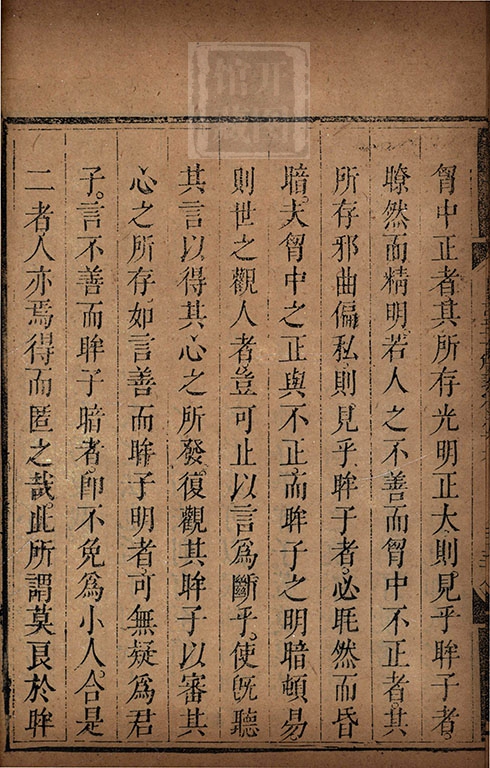 胷中正者其所存光明正大則見乎眸子者
瞭然而精明若人之不善而胷中不正者其
所存邪曲偏私則見乎眸子者必眊然而昏
暗夫胷中之正與不正而眸子之明暗頓易
則世之觀人者豈可止以言爲斷乎使旣聽
其言以得其心之所發復觀其眸子以審其
心之所存如言善而眸子明者可無疑爲君
子言不善而眸子暗者卽不免爲小人合是
二者人亦焉得而匿之哉此所謂莫良於眸